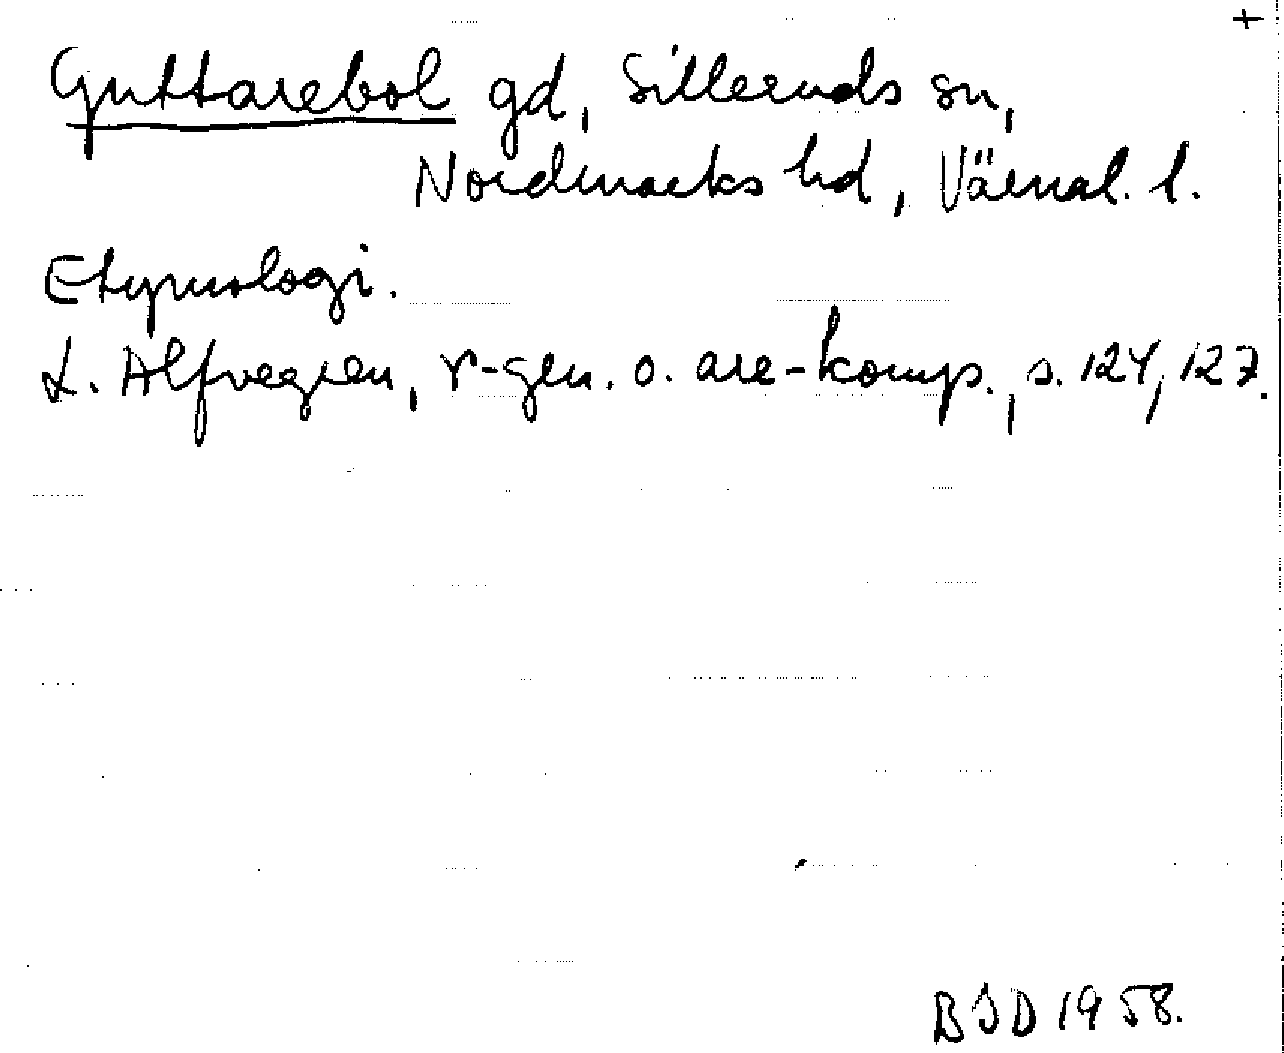 +
Guttarebol gd, Silleruds sn,
Nordmarks hd, Värml. l.
Etymologi.
L. Alfvegren, r-gen. o. are-komp., s. 124, 127.
BJD 1958.